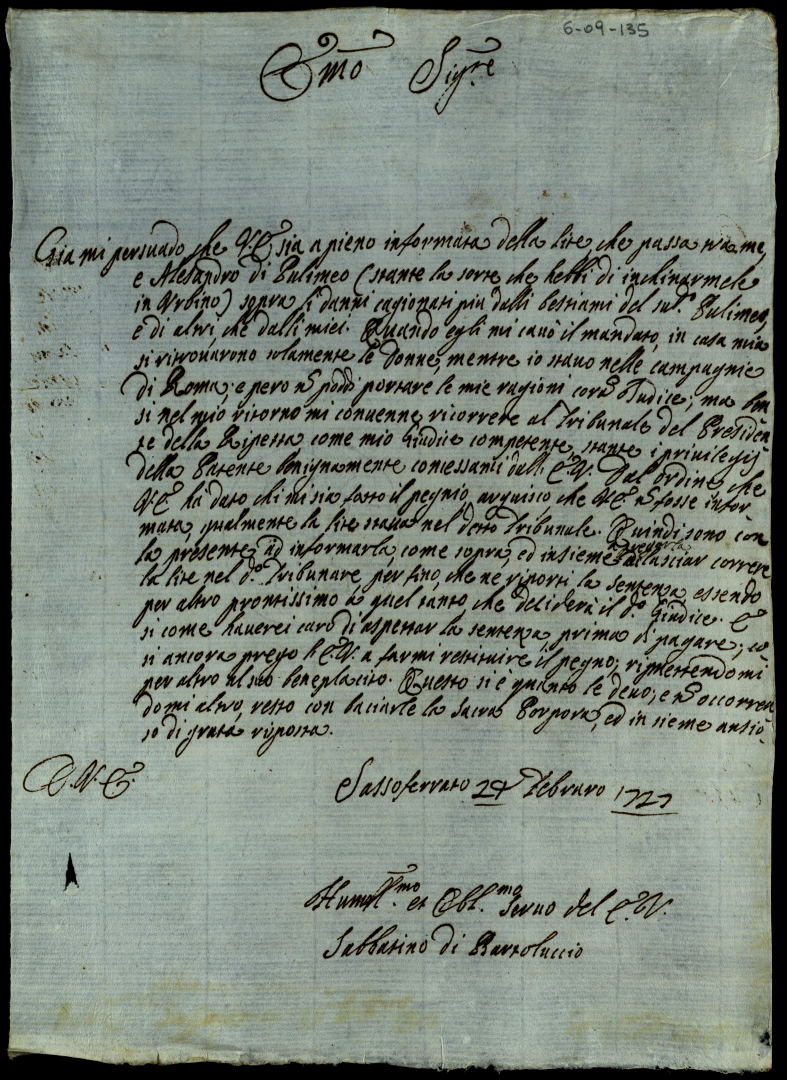 6-09-135
Emo Sigre
Gia mi persuado che V.E. sia a pieno informata della lite, che passa tra me,
e Alesandro di Pulimeo (stante la sorte che hebbi di inchinarmele
in Urbino) sopra li danni cagionati piu dalli bestiami del sud.o Pulimeo,
e di altri, che dalli miei. Quando egli mi cavò il mandato, in casa mia
si ritrovarono solamente le Donne, mentre io stavo nelle campagnie
di Roma; e pero nõ poddi portare le mie ragioni cora Judice; ma ben
si nel mio ritorno mi convenne ricorrere al Tribunale del Presiden
te della Ripetta come mio Giudice competente, stante i privilegij
della Patente benignamente concessami dall' E.V. Dal ordine che
V.E. ha dato chi mi sia fatto il pegnio, arguisco, che V.E. nõ fosse infor
mata, qualmente la lite stava nel detto Tribunale. Quindi sono con
la presente ad informarla, come sopra, ed insieme a lasciar correre
la lite nel d.o Tribunare, per fino, che ne riporti la sentenza essendo
per altro prontissimo à quel tanto che deciderà il d.o Giudice. E
si come haverei caro d'aspettar la sentenza, prima di pagare; co
si ancora prego l'E.V. a farmi restituire il pegno; rimettendomi
per altro al suo beneplacito. Questo si è quanto le devo; e nõ occorren
domi altro, resto con baciarle la Sacra Porpora, ed in sieme ansio
so di grata risposta.
D.V.E.
Sassoferrato 24 Febraro 1727
Humil.mo et Obl.mo Servo del E.V.
Sabbatino di Bartoluccio